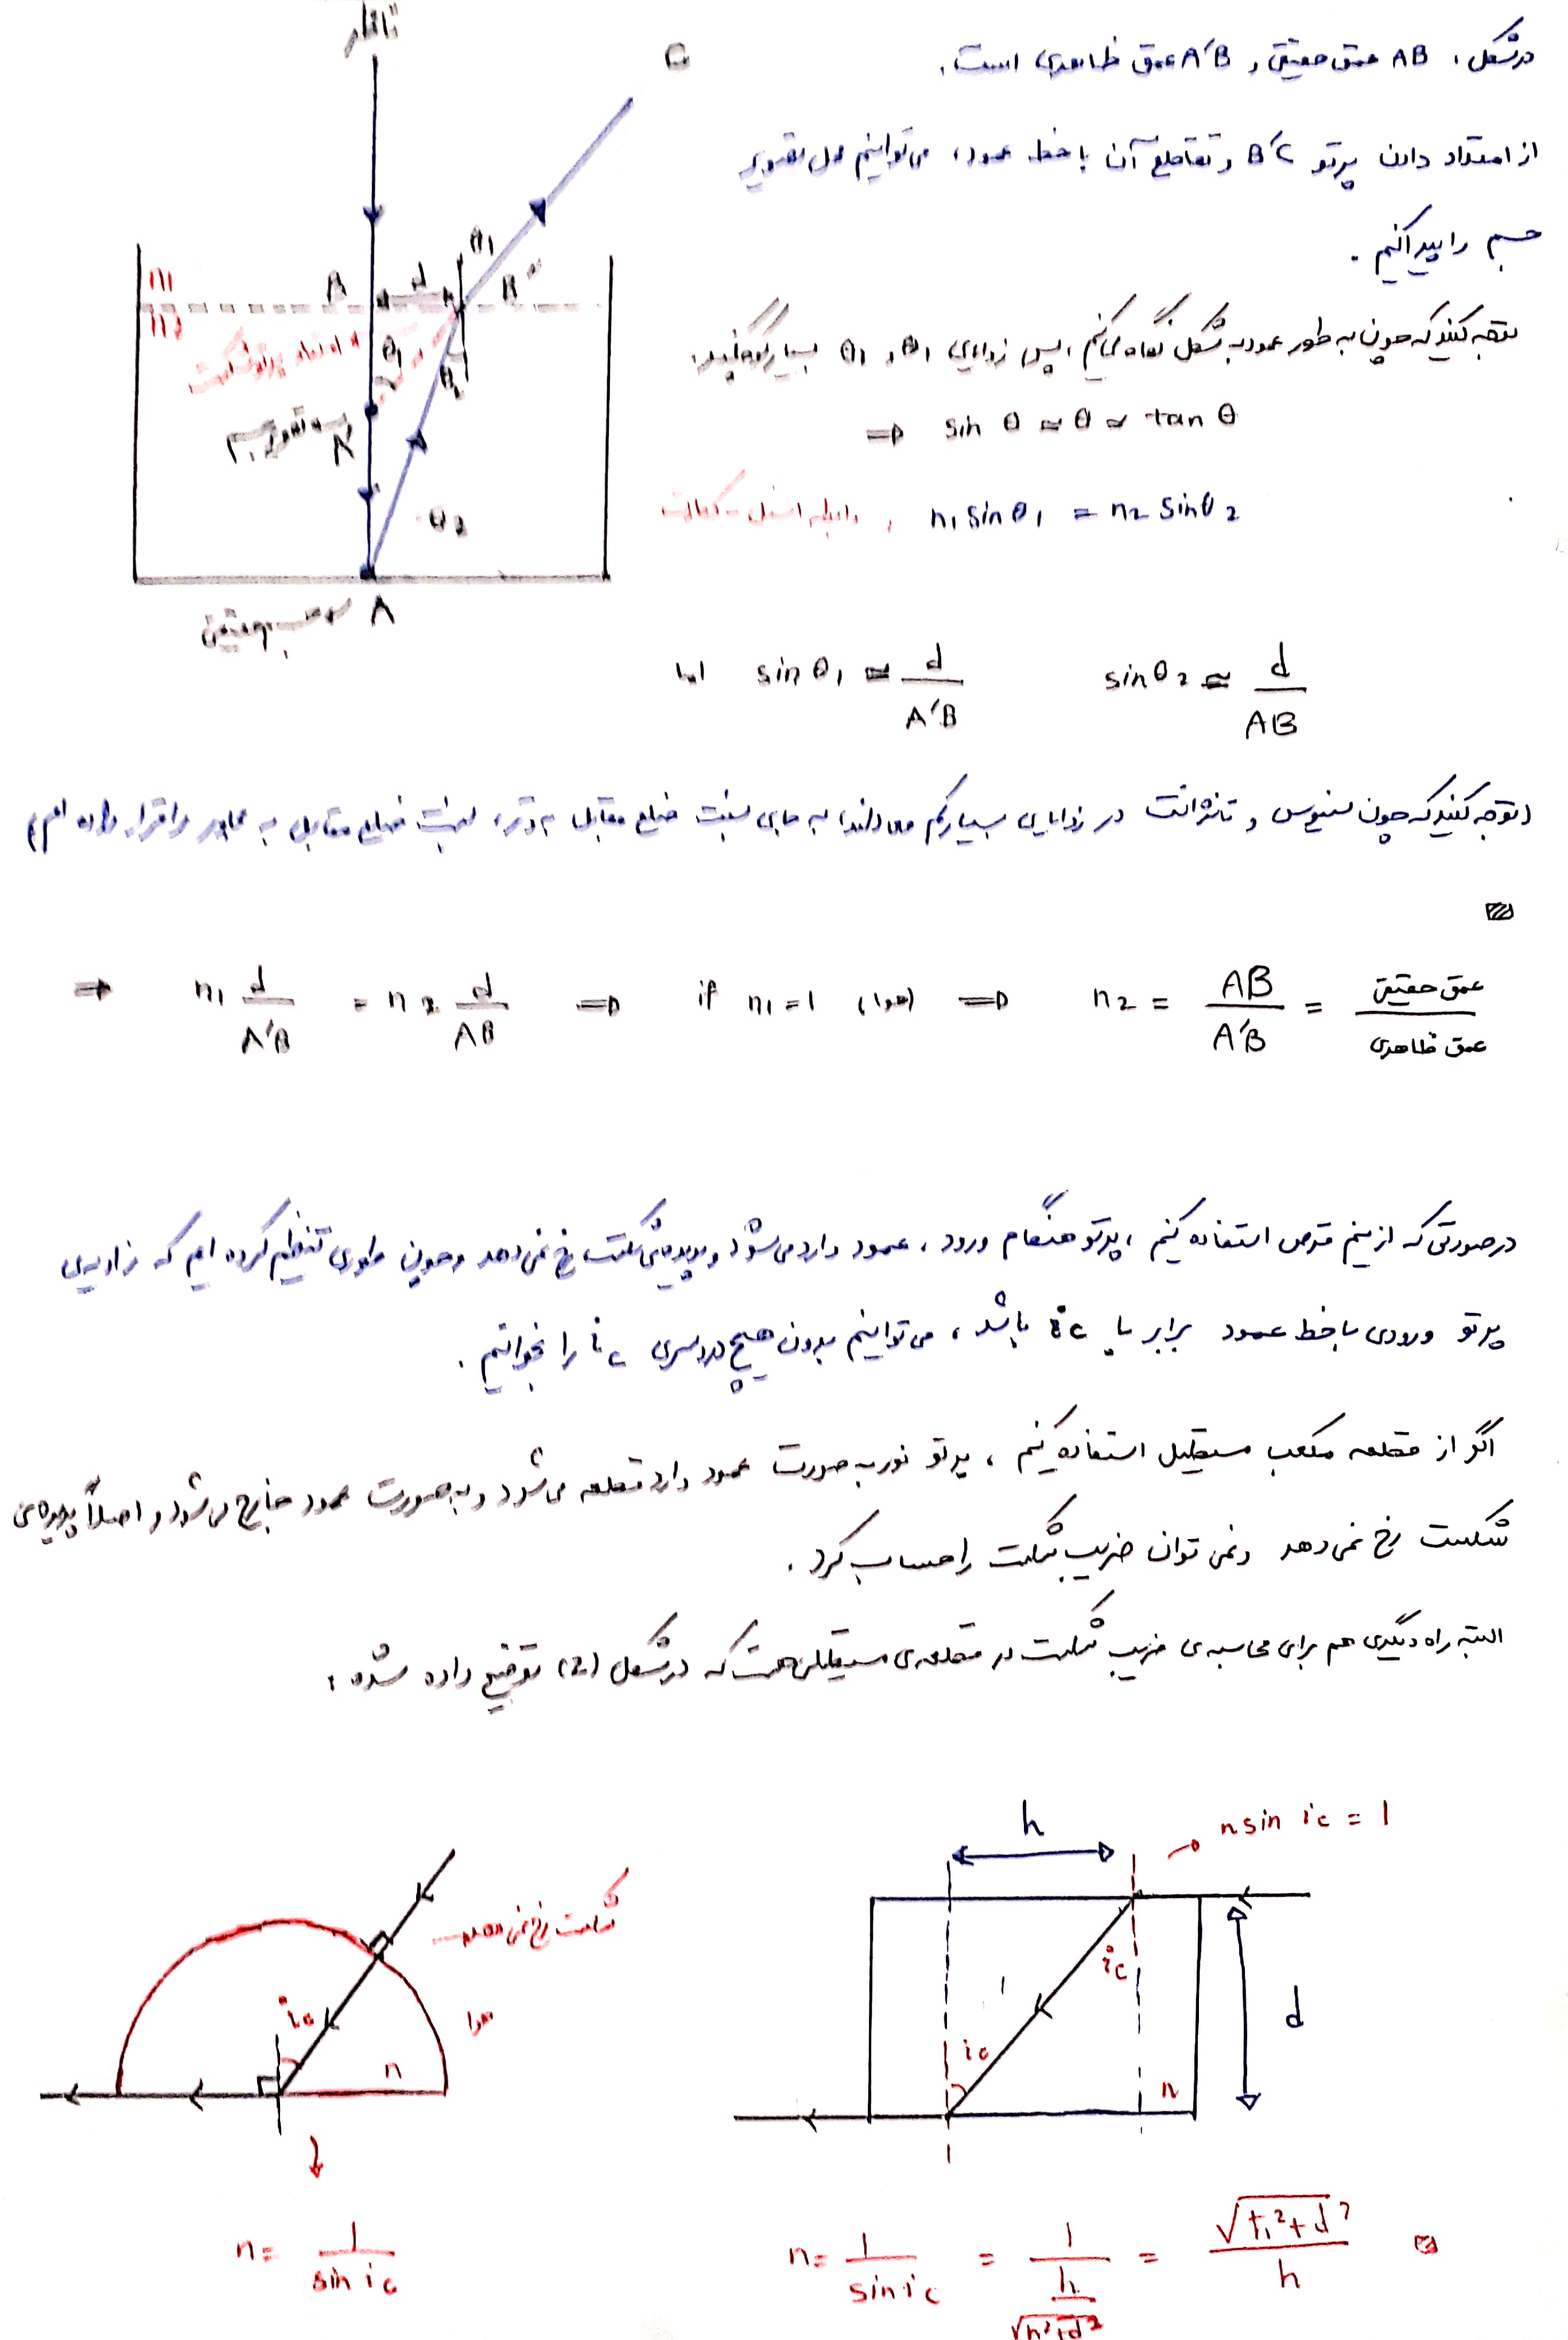 ناظر
C
در شکل، AB عمق حقیقی و A'B عمق ظاهری است.
از امتداد دادن پرتو B'C و تقاطع آن با خط عمود، می‌توانیم محل تصویر
جسم را پیدا کنیم.
توجه کنید که چون به طور عمود به شکل نگاه می‌کنیم، پس زوایای θ1 و θ1 بسیار کوچکند:
⇒ sin θ ≈ θ ≈ tan θ
رابطه اسنل - دکارت , n1 sin θ1 = n2 sin θ2
n1
n2
B
d
B'
θ1
θ1
θ2
امتداد پرتو شکست
تصویر جسم
A'
θ2
A
جسم حقیقی
اما sin θ1 ≈ d/A'B sin θ2 ≈ d/AB
(توجه کنید که چون سینوس و تانژانت در زوایای بسیار کم معادلند، به جای نسبت ضلع مقابل به وتر، نسبت ضلع مقابل به مجاور را قرار داده ایم)
⇒ n1 d/A'B = n2 d/AB ⇒ if n1 = 1 (هوا) ⇒ n2 = AB/A'B = عمق حقیقی/عمق ظاهری
در صورتی که از نیم قرص استفاده کنیم، پرتو هنگام ورود، عمود وارد می‌شود و پدیده‌ی شکست رخ نمی‌دهد و چون طوری تنظیم کرده ایم که زاویه‌ی
پرتو ورودی با خط عمود برابر با ic باشد، می‌توانیم بدون هیچ دردسری ic را بخوانیم.
اگر از قطعه مکعب مستطیل استفاده کنیم، پرتو نور به صورت عمود وارد قطعه می‌شود و به صورت عمود خارج می‌شود و اصلاً پدیده‌ی
شکست رخ نمی‌دهد و نمی توان ضریب شکست را حساب کرد.
البته راه دیگری هم برای محاسبه‌ی ضریب شکست در قطعه‌ی مستطیلی هست که در شکل (2) توضیح داده شده:
h
n sin ic = 1
شکست رخ نمی دهد
ic
هوا
n
ic
ic
d
n
n = 1/sin ic
n = 1/sin ic = 1/(h/√(h²+d²)) = √(h²+d²)/h